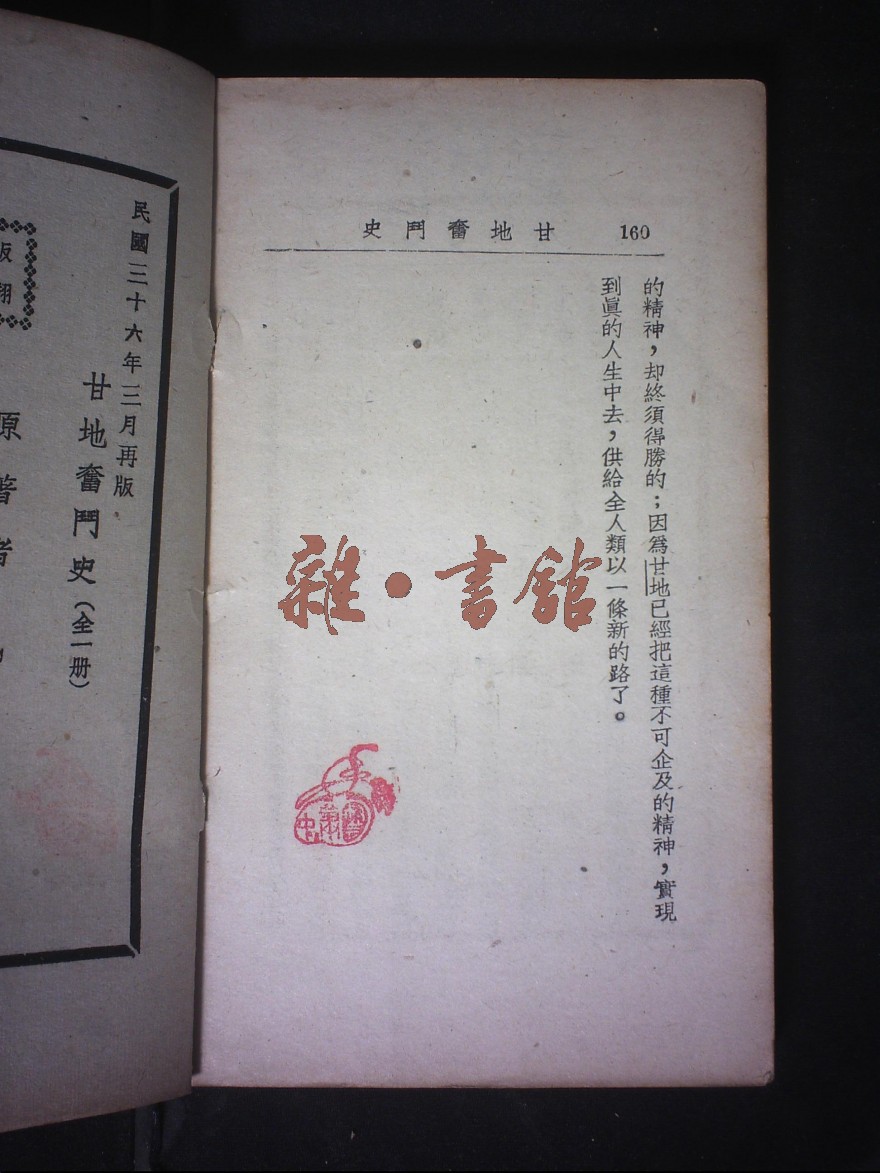 甘地奮鬥史 160
的精神，却終須得勝的；因爲甘地已經把這種不可企及的精神，實現
到眞的人生中去，供給全人類以一條新的路了。
雜·書館
民國三十六年三月再版
甘地奮鬥史（全一册）
原著者
版
翻